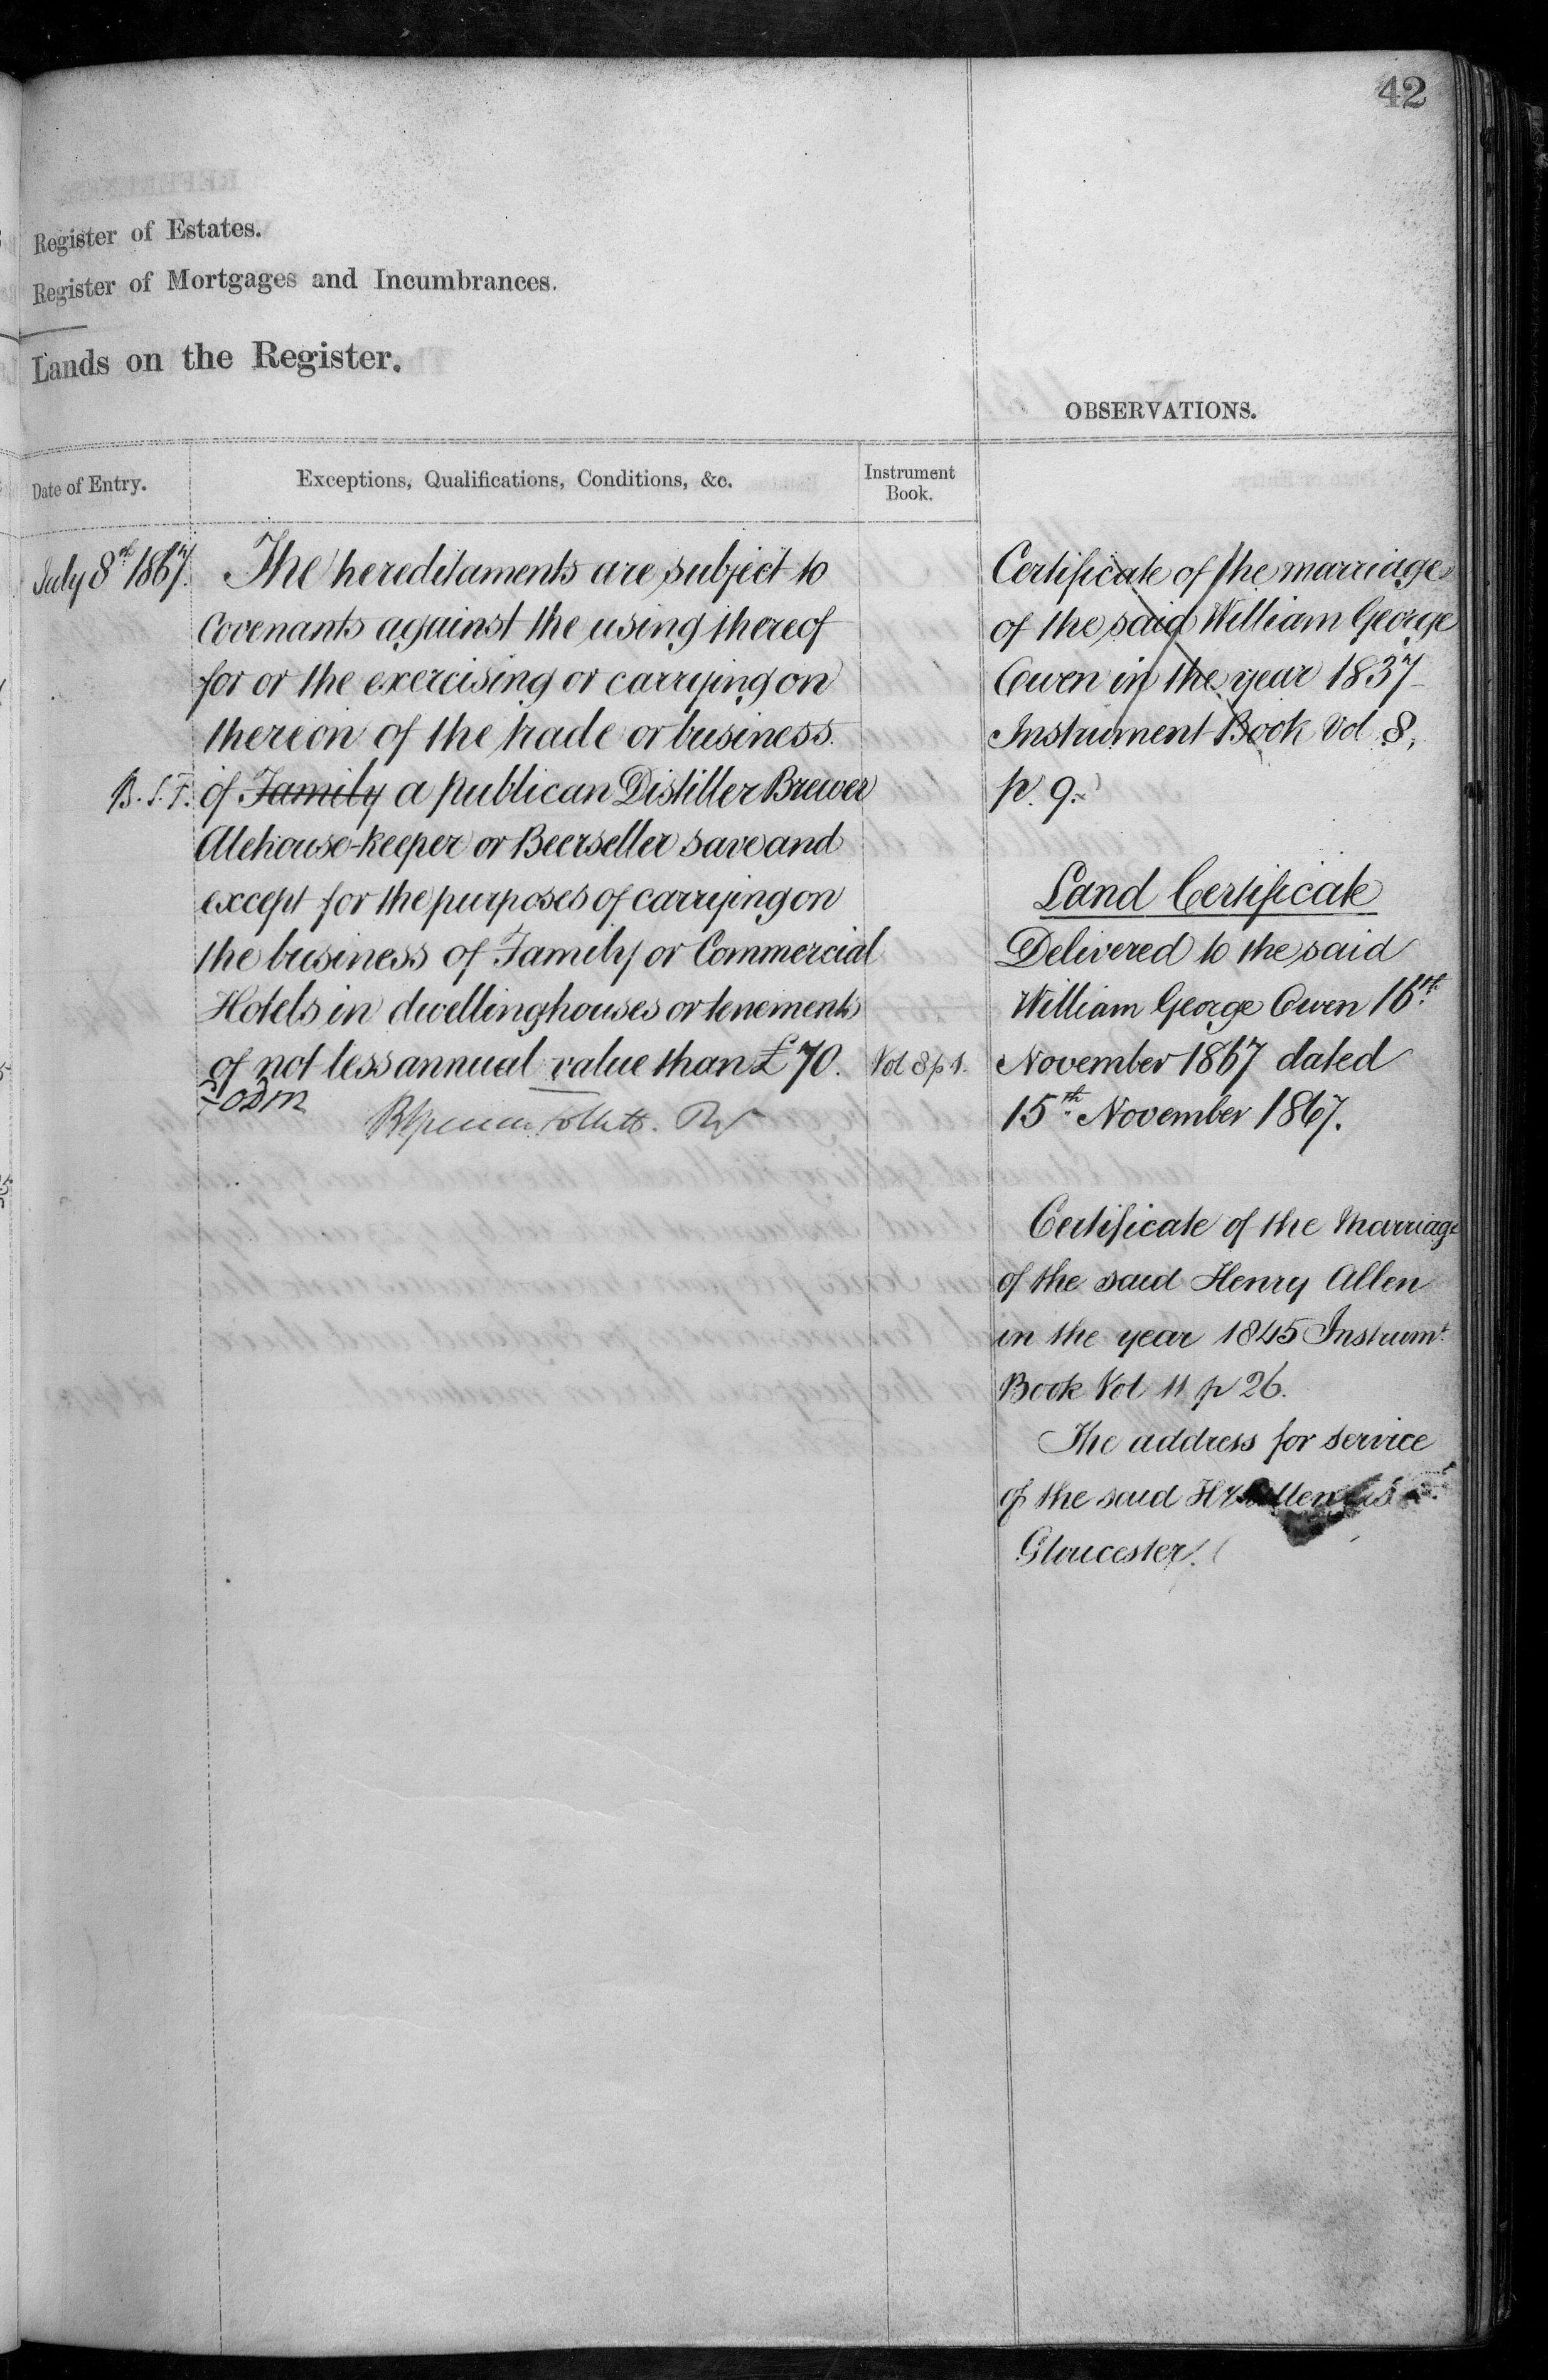 42
Register of Estates.
Register of Mortgages and Incumbrances.
Lands on the Register.
OBSERVATIONS.
Date of Entry.
Exceptions, Qualifications, Conditions, &c.
Instrument
Book.
July 8th 1867.
The hereditaments are subject to
Covenants against the using thereof
for or the exercising or carrying on
thereon of the trade or business
B.S.F. of Family a publican Distiller Brewer
Alehouse-keeper or Beerseller save and
except for the purposes of carrying on
the business of Family or Commercial
Hotels in dwellinghouses or tenements
of not less annual value than £70.
Vol 8 p 1.
Certificate of the marriage
of the said William George
Owen in the year 1837
Instrument Book Vol 8,
p. 9.
Land Certificate
Delivered to the said
William George Owen 16th
November 1867 dated
15th November 1867.
Certificate of the Marriage
of the said Henry Allen
in the year 1845 Instrumt
Book Vol 11 p 26.
The address for service
of the said Hy Allen is
Gloucester.